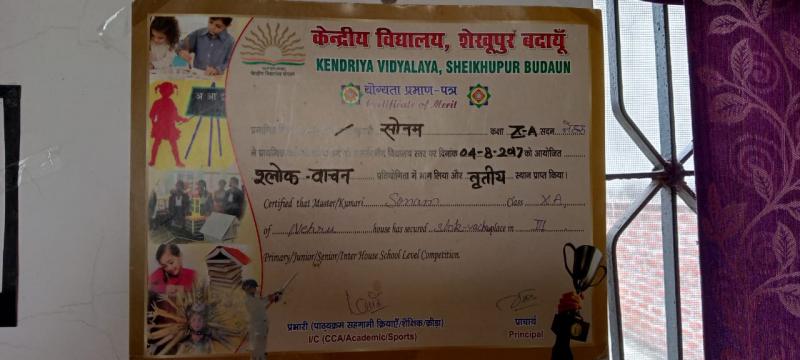 केन्द्रीय विद्यालय, शेखूपुर बदायूँ
KENDRIYA VIDYALAYA, SHEIKHUPUR BUDAUN
योग्यता प्रमाण-पत्र
Certificate of Merit
प्रमाणित सोनम कक्षा X-A सदन
ने विद्यालय स्तर पर दिनांक 04-8-2017 को आयोजित
श्लोक-वाचन प्रतियोगिता में भाग लिया और तृतीय स्थान प्राप्त किया।
Certified that Master/Kumari Sonam Class XA,
of Nehru house has secured place in III
Primary/Junior/Senior/Inter House School Level Competition.
प्रभारी (पाठ्यक्रम सहगामी क्रियाएँ/शैक्षिक/क्रीड़ा) प्राचार्य
I/C (CCA/Academic/Sports) Principal